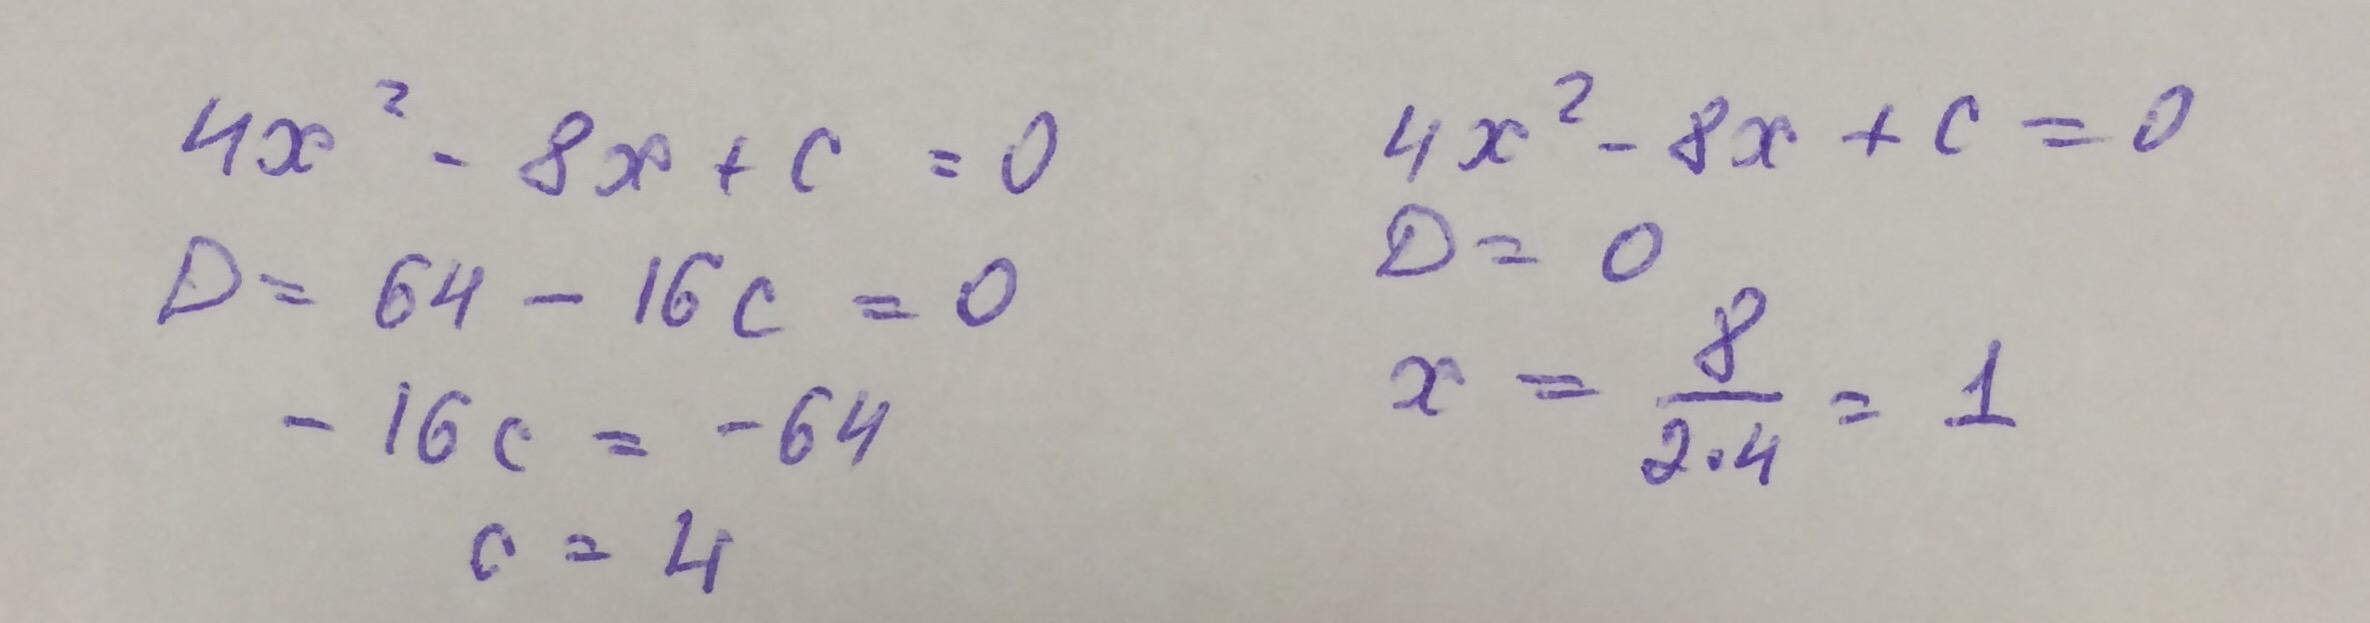 4x² - 8x + c = 0
D = 64 - 16c = 0
- 16c = -64
c = 4
4x² - 8x + c = 0
D = 0
x = 8/(2·4) = 1